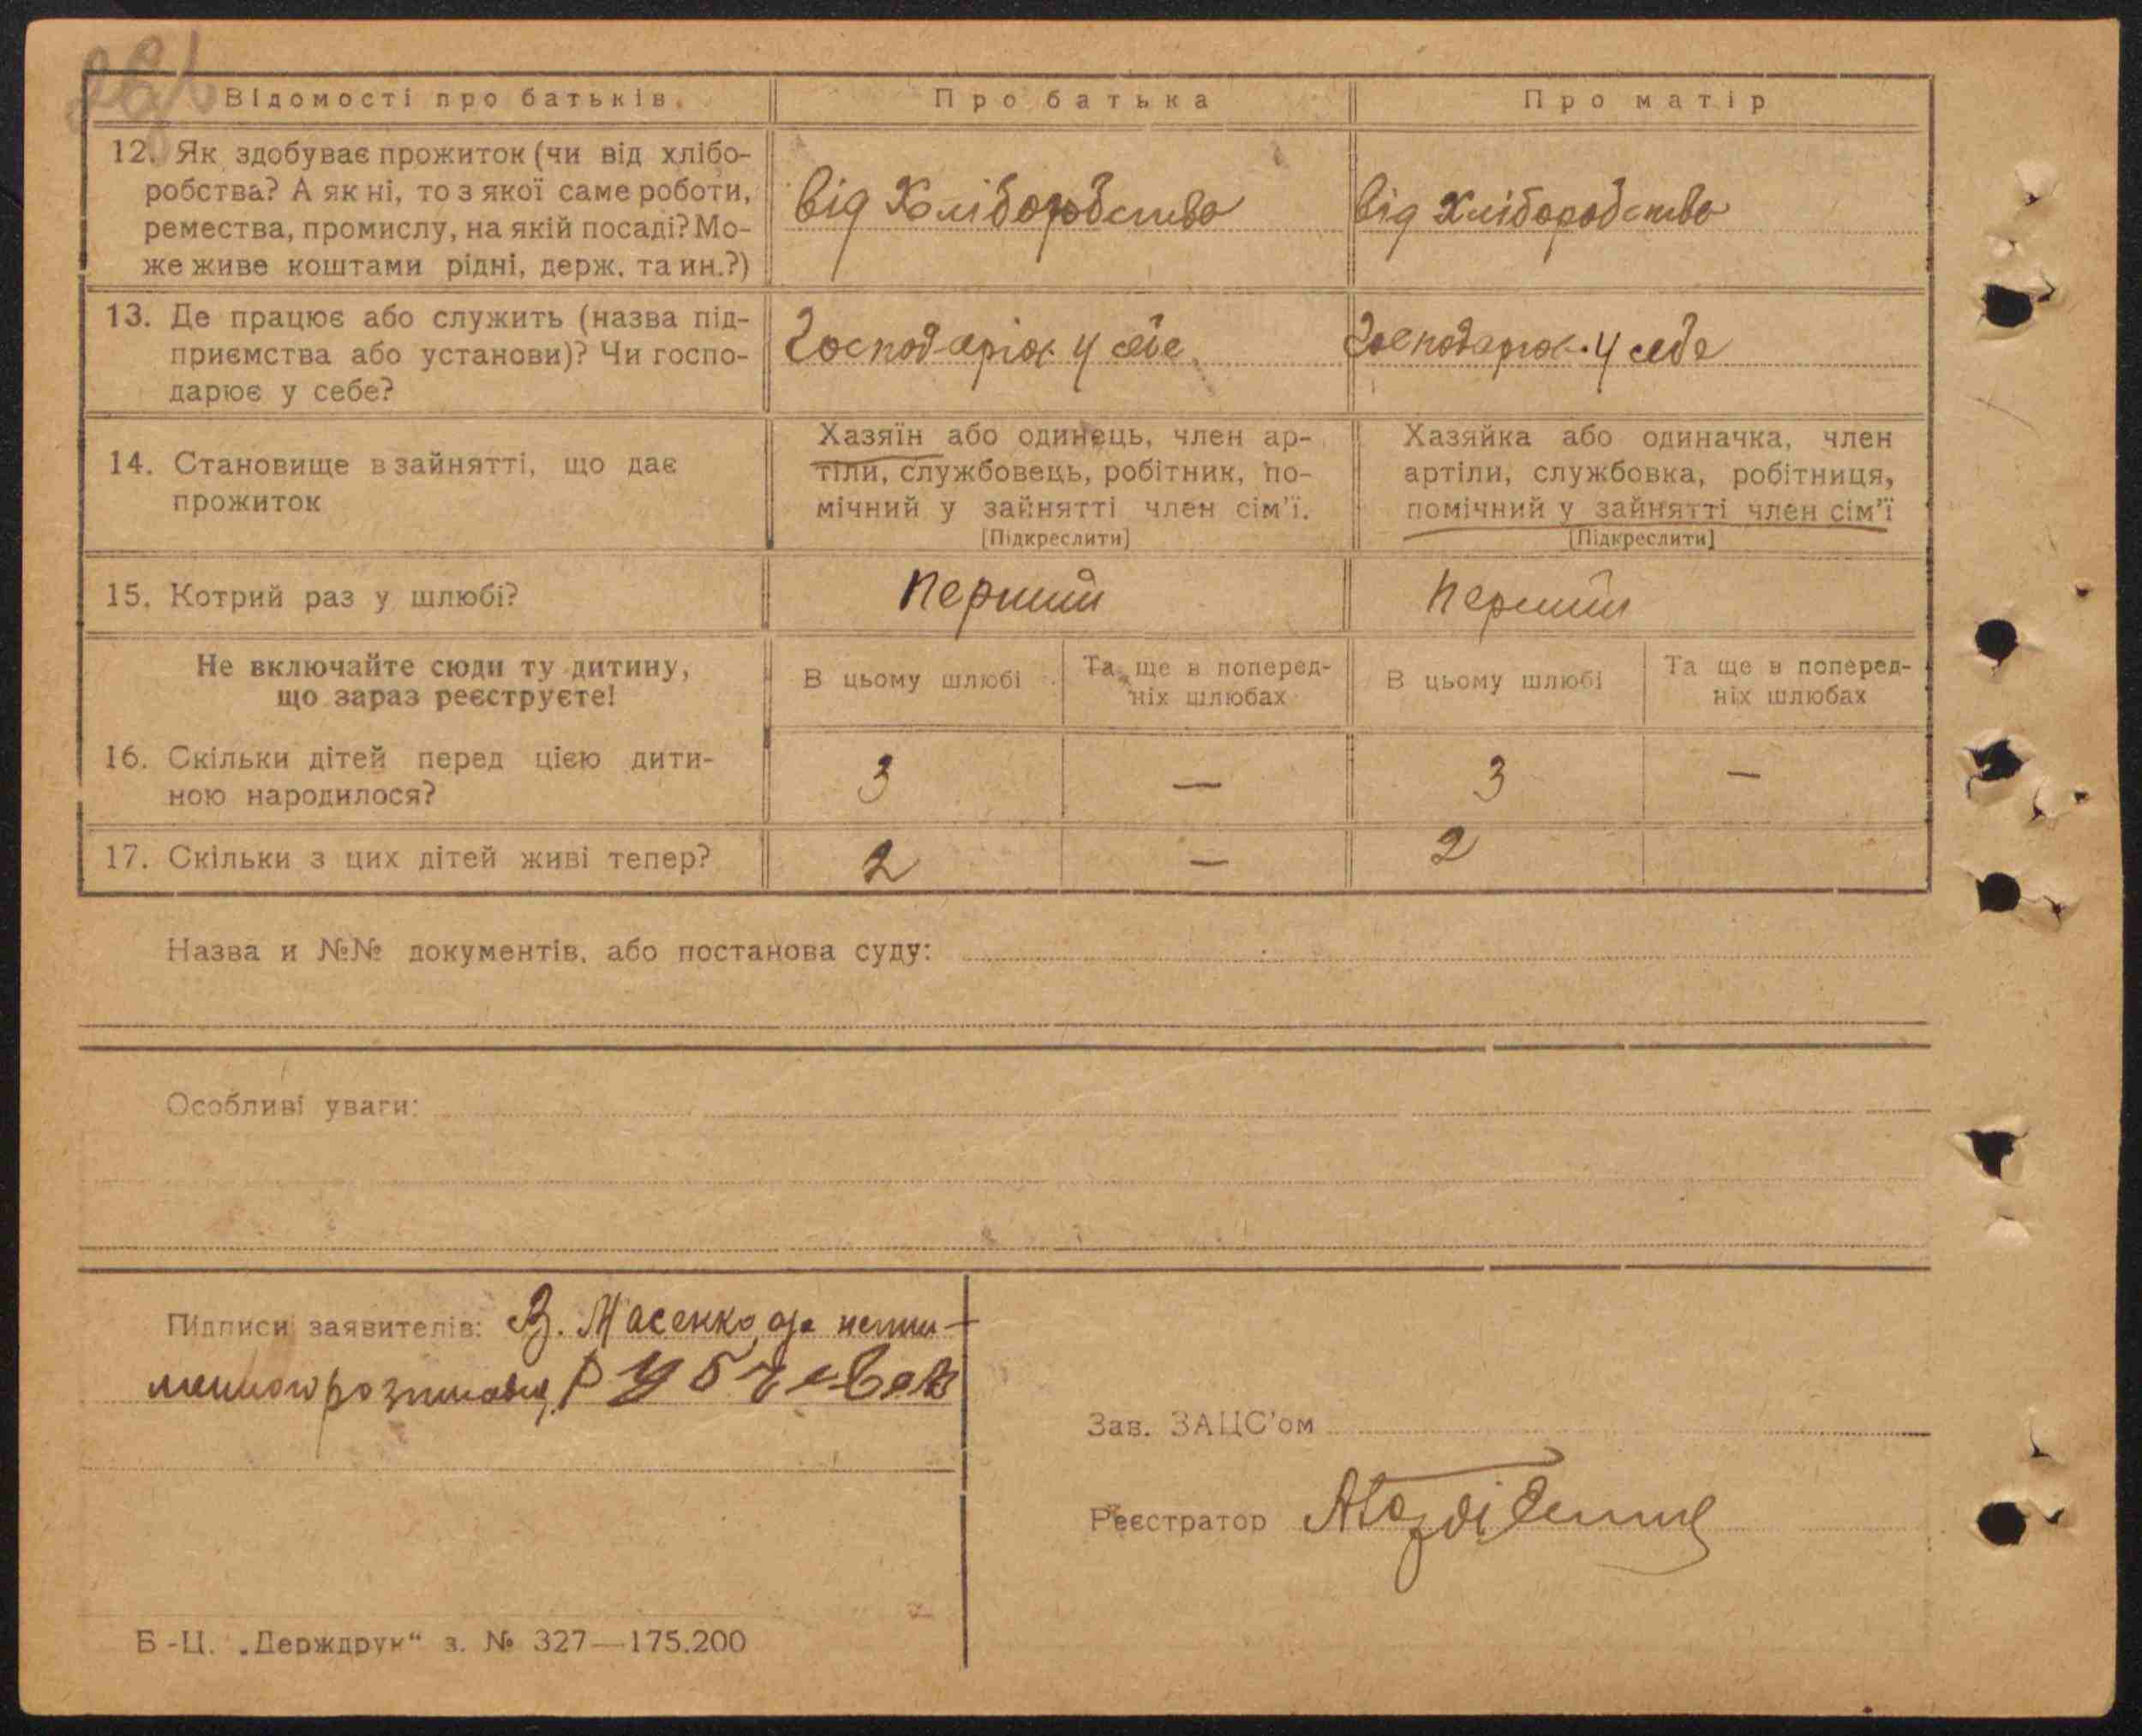 Відомості про батьків. Про батька Про матір
12. Як здобуває прожиток (чи від хлібо-
робства? А як ні, то з якої саме роботи,
ремества, промислу, на якій посаді? Мо-
же живе коштами рідні, держ. та ин.?)
від Хліборобства від Хліборобства
13. Де працює або служить (назва під-
приємства або установи)? Чи госпо-
дарює у себе?
Господарює у себе Господарює у себе
14. Становище в зайнятті, що дає
прожиток
Хазяїн або одинець, член ар-
тіли, службовець, робітник, по-
мічний у зайнятті член сім'ї.
[Підкреслити]
Хазяйка або одиначка, член
артіли, службовка, робітниця,
помічний у зайнятті член сім'ї
[Підкреслити]
15. Котрий раз у шлюбі? перший перший
Не включайте сюди ту дитину,
що зараз реєструєте!
В цьому шлюбі
Та ще в поперед-
ніх шлюбах
В цьому шлюбі
Та ще в поперед-
ніх шлюбах
16. Скільки дітей перед цією дити-
ною народилося?
3 — 3 —
17. Скільки з цих дітей живі тепер? 2 — 2
Назва и №№ документів, або постанова суду:
Особливі уваги:
Підписи заявителів: В. Масенко, а
Зав. ЗАЦС'ом
Реєстратор
Б-Ц. „Держдрук“ з. № 327—175.200